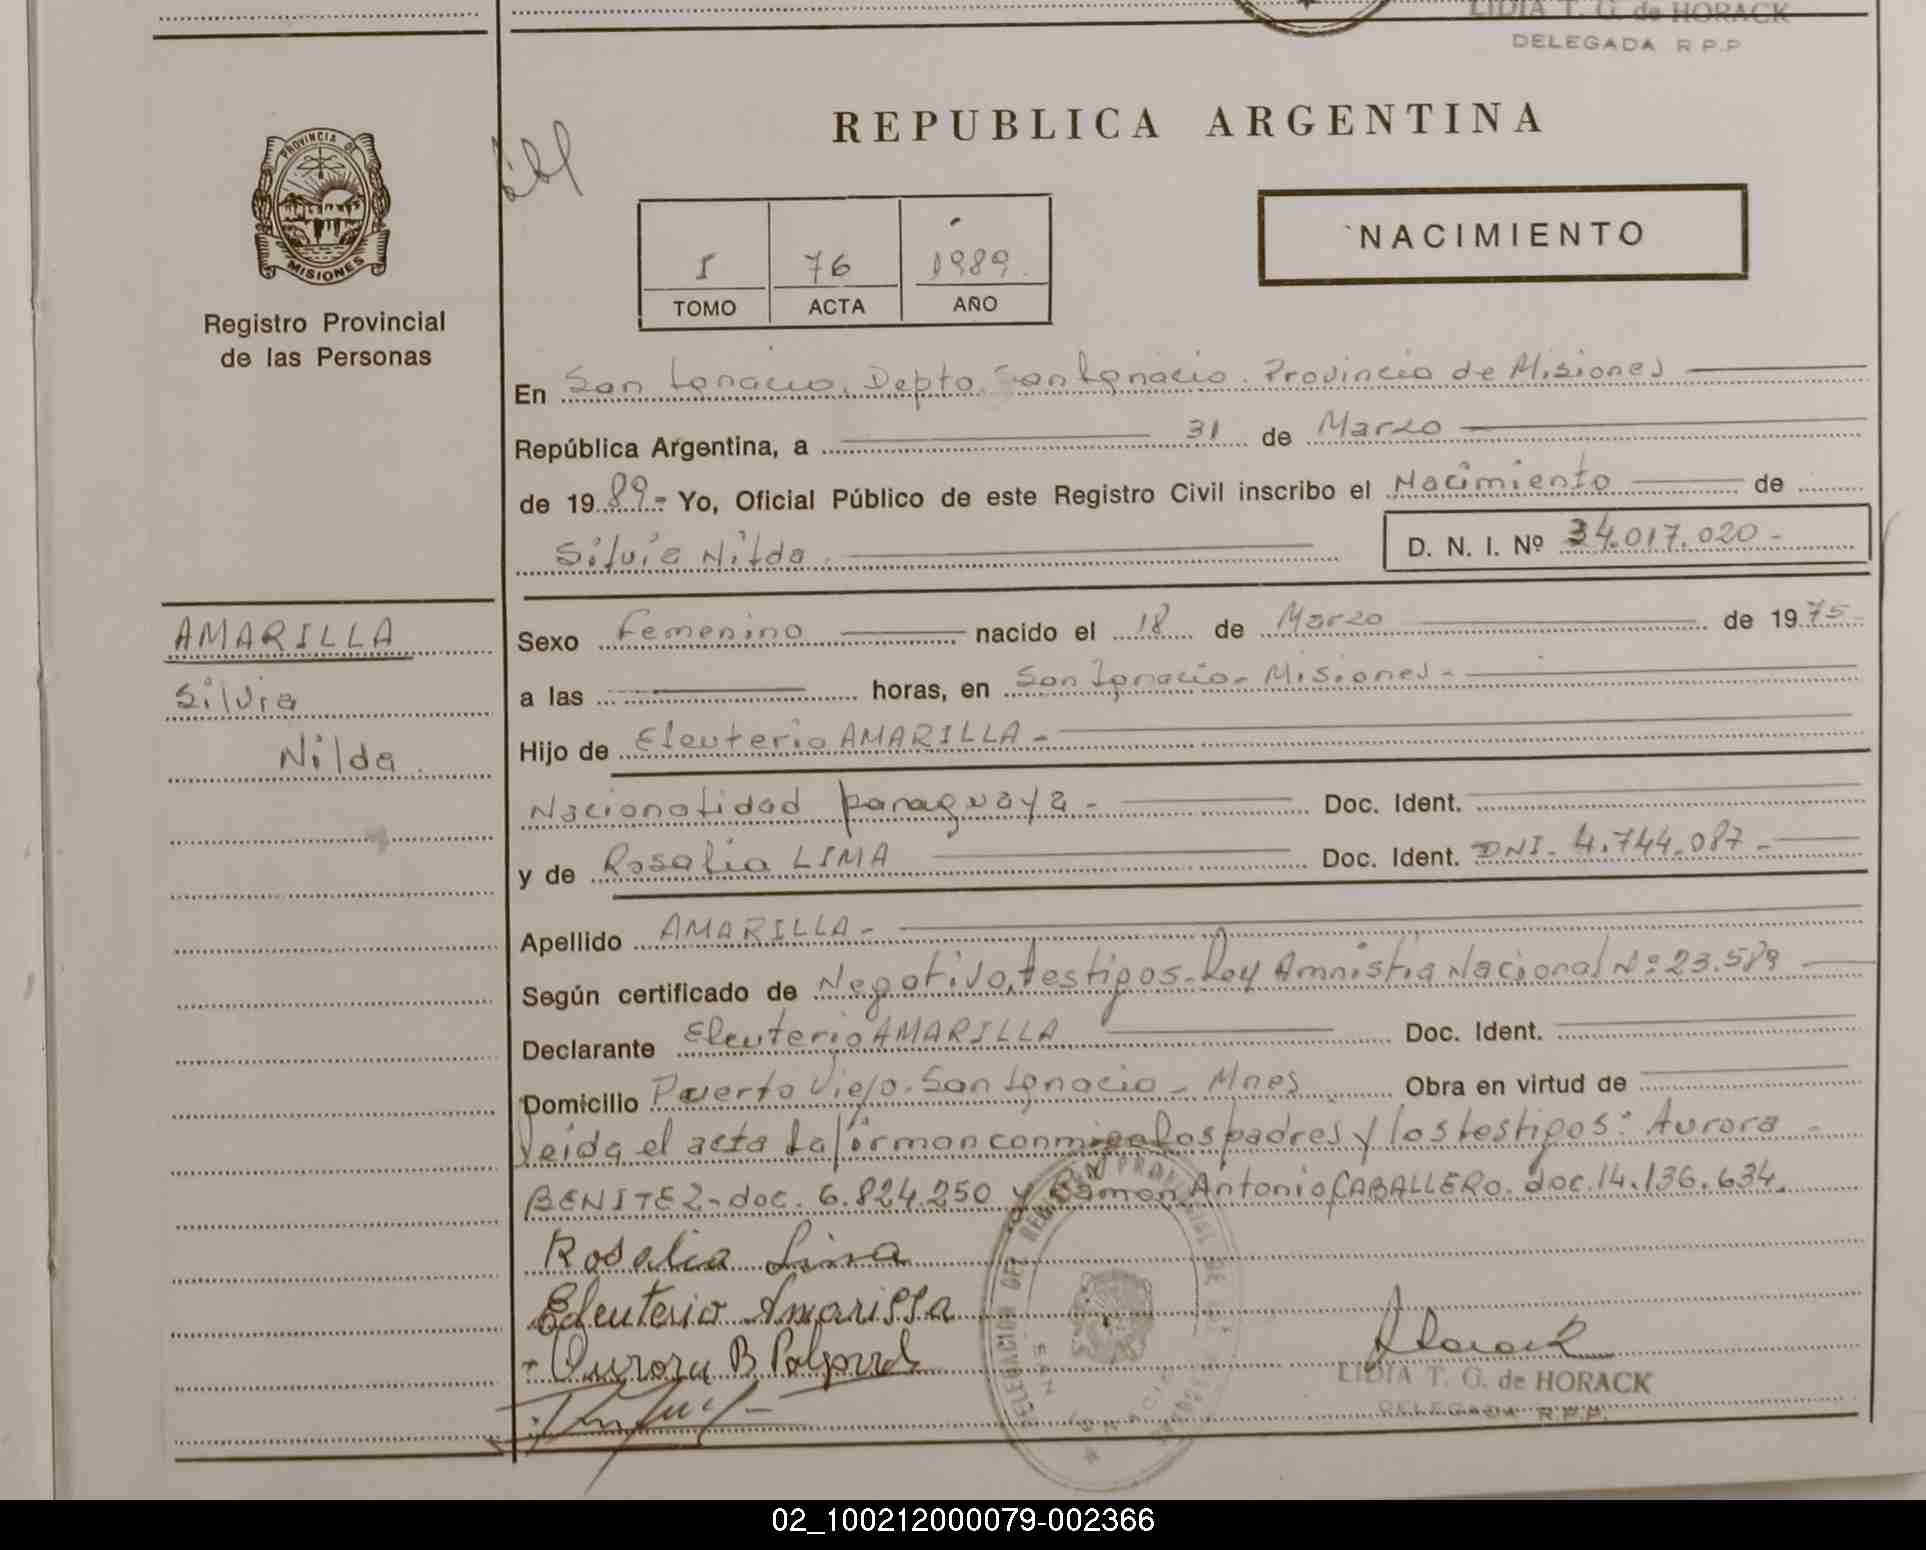 LIDIA T. G. de HORACK
DELEGADA R.P.P
PROVINCIA DE
MISIONES
Registro Provincial
de las Personas
REPUBLICA ARGENTINA
NACIMIENTO
I 76 1989
TOMO ACTA AÑO
En San Ignacio. Depto. San Ignacio. Provincia de Misiones
República Argentina, a 31 de Marzo
de 1989.- Yo, Oficial Público de este Registro Civil inscribo el Nacimiento de
Silvia Nilda. D. N. I. Nº 34.017.020-
AMARILLA
Silvia
Nilda.
Sexo Femenino nacido el 18 de Marzo de 1975
a las horas, en San Ignacio- Misiones-
Hijo de Eleuterio AMARILLA-
Nacionalidad paraguaya- Doc. Ident.
y de Rosalia LIMA Doc. Ident. DNI- 4.744.087-
Apellido AMARILLA-
Según certificado de Negativo, testigos- Ley Amnistia Nacional Nº 23.589
Declarante Eleuterio AMARILLA Doc. Ident.
Domicilio Puerto Viejo- San Ignacio- Mnes Obra en virtud de
Leida el acta la firman conmigo los padres y los testigos: Aurora
BENITEZ- doc. 6.824.250 y Ramon Antonio CABALLERO. doc. 14.136.634.
Rosalia Lima
Eleuterio Amarilla
Aurora B
LIDIA T. G. de HORACK
DELEGADA R.P.P.
DELEGACION DEL REGISTRO PROVINCIAL DE LAS PERSONAS
SAN IGNACIO
02_100212000079-002366